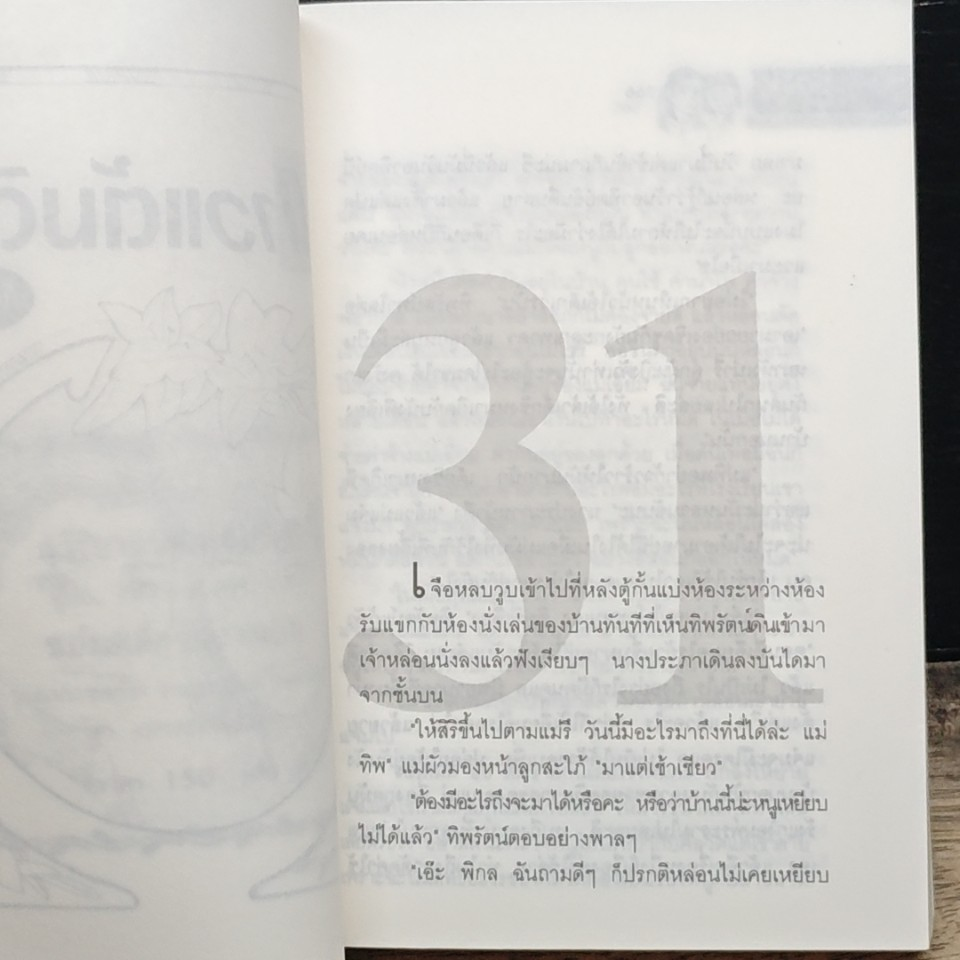 31
เจือหลบวูบเข้าไปที่หลังตู้กั้นแบ่งห้องระหว่างห้อง
รับแขกกับห้องนั่งเล่นของบ้านทันทีที่เห็นทิพรัตน์เดินเข้ามา
เจ้าหล่อนนั่งลงแล้วฟังเงียบๆ นางประภาเดินลงบันไดมา
จากชั้นบน
"ให้สิริขึ้นไปตามแม่รี วันนี้มีอะไรมาถึงที่นี่ได้ล่ะ แม่
ทิพ" แม่ผัวมองหน้าลูกสะใภ้ "มาแต่เช้าเชียว"
"ต้องมีอะไรถึงจะมาได้หรือคะ หรือว่าบ้านนี้น่ะหนูเหยียบ
ไม่ได้แล้ว" ทิพรัตน์ตอบอย่างพาลๆ
"เอ๊ะ พิกล ฉันถามดีๆ ก็ปรกติหล่อนไม่เคยเหยียบ